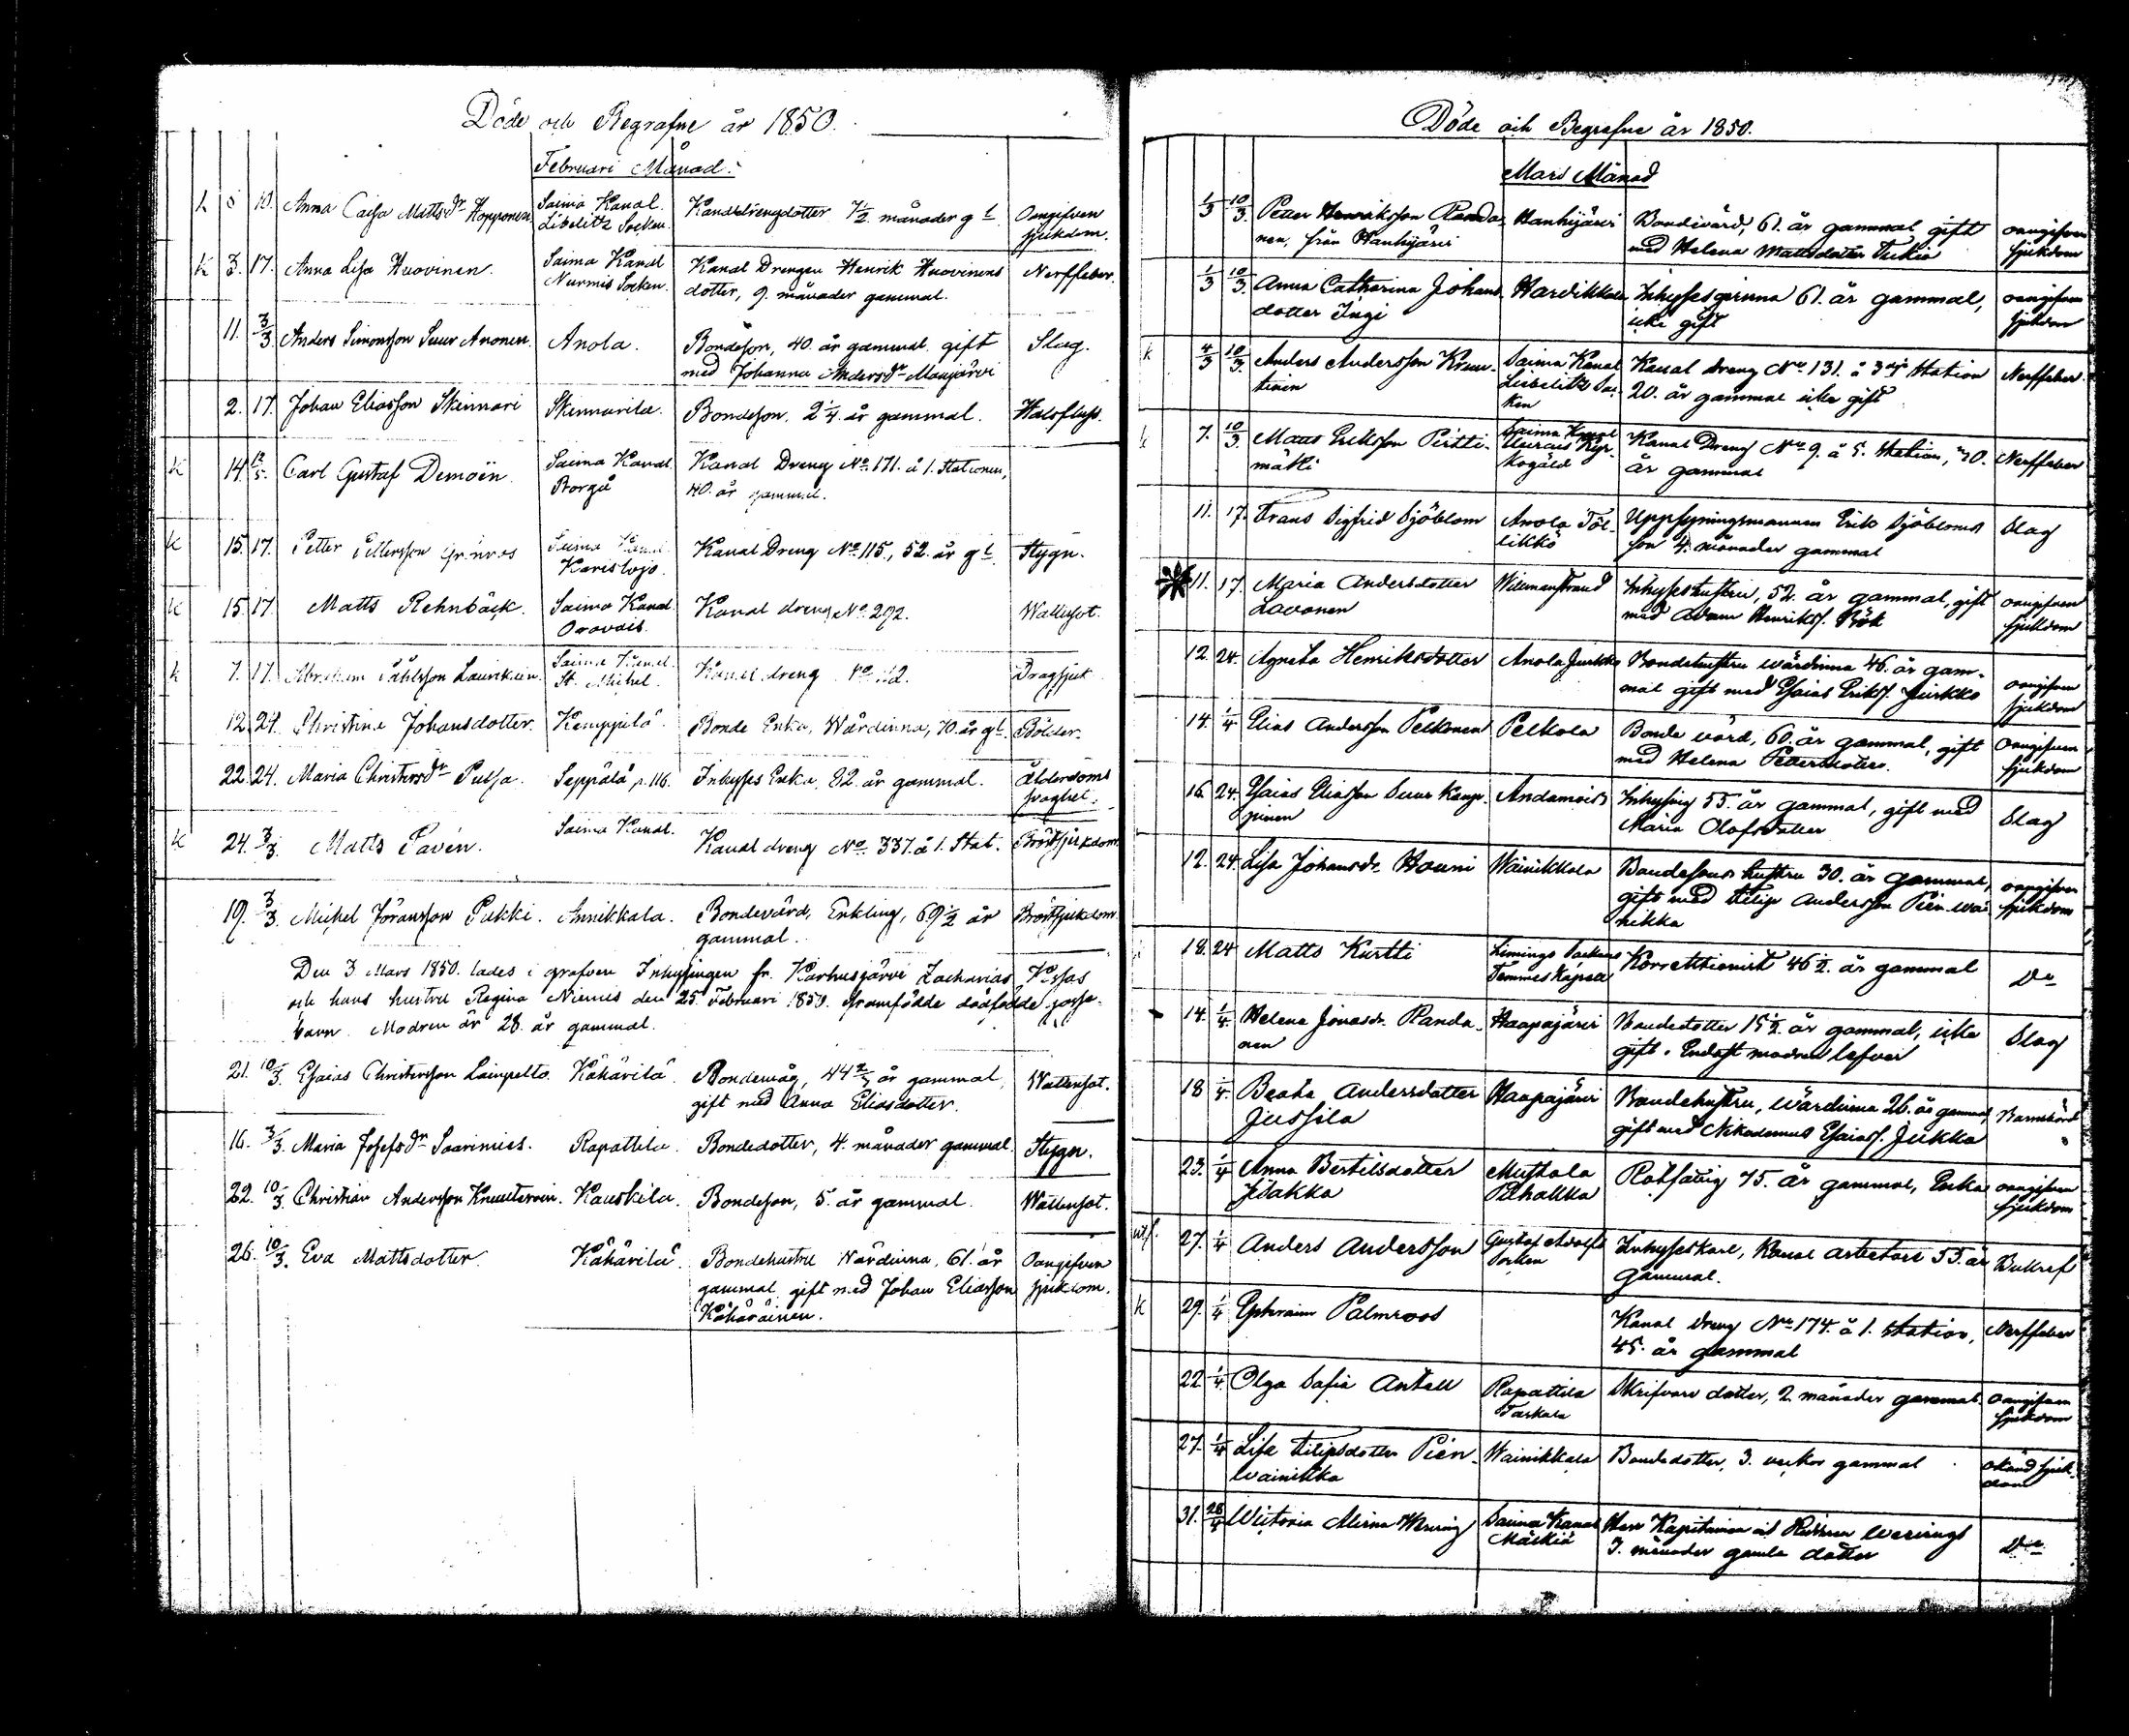 Döde och Begrafne år 1850.
Februari Månad.
k 8 10. Anna Caisa Mattsdr Hopponen Saima Kanal. Kanaldrengdotter 7 1/2 månader gl Oangifven
Libelitz Socken. sjukdom.
k 3. 17. Anna Lisa Huovinen. Saima Kanal Kanal Drengen Henrik Huovinens Nerffeber.
Nurmis Socken. dotter, 9. månader gammal.
11. 3/3 Anders Simonsson Suur Anonen. Anola. Bondeson, 40. år gammal. gift Slag.
med Johanna Andersdr Monjärvi
2. 17. Johan Eliasson Skinnari Skinnarila. Bondeson, 2 1/4 år gammal. Halsfluss.
k 14. Carl Gustaf Demoën Saima Kanal. Kanal Dreng No 171. å 1. Stationen,
Borgå 40. år gammal.
k 15. 17. Petter Pettersson Grönroos Saima Kanal Kanal Dreng No 115., 52. år gl Stygn.
Karislojo.
k 15. 17. Matts Rehnbäck. Saima Kanal. Kanal dreng No 292. Wattusot.
Oravais.
k 7. 17. Abraham Påhlsson Laurikain. Saima Kanal. Kanal dreng No Dragsjuk
St. Michel.
12. 24. Christina Johansdotter. Kemppilä. Bonde Enka, Wärdinna, 70. år gl. Bölder.
22. 24. Maria Christersdr Pulsa. Seppälä p. 116. Inhyses Enka, 82. år gammal. Ålderdoms
svaghet.
k 24. 3/3. Matts Pavén. Saima Kanal. Kanal dreng No 337. å 1. Stat. Bröstsjukdom.
19. 3/3. Michel Jöransson Pukki. Annikkala. Bondevärd, Enkling, 69 1/2 år Bröstsjukdom.
gammal.
Den 3 Mars 1850. lades i grafven Inhysingen fr. Karhusjärvi Zacharias
och hans hustru Regina Niemis den 25. Februari 1850. framfödde dödfödde gosse-
barn. Modren är 28. år gammal.
21. 10/3. Esaias Christersson Lampelto. Kähärilä. Bondemåg, 44 år gammal, Wattensot.
gift med Anna Eliasdotter.
16. 3/3. Maria Josefsdr Saarimies. Rapattila. Bondedotter, 4. månader gammal. Stygn.
22. 10/3. Christian Andersson Knuuteroin. Kauskila. Bondeson, 5. år gammal. Wattensot.
26. 10/3. Eva Mattsdotter. Kähärilä. Bondehustru Wärdinna, 61. år Oangifven
gammal, gift med Johan Eliasson sjukdom.
Kähäräinen.
Döde och Begrafne år 1850.
Mars Månad
1/3 10/3. Petter Henriksson Randa- Hanhijärvi Bondevärd, 61. år gammal gift oangifven
nen, från Hanhijärvi med Helena Mattsdotter Turkia sjukdom
1/3 10/3. Anna Catharina Johans- Hardikkala Inhysesqvinna 61. år gammal, oangifven
dotter Ingi icke gift sjukdom
k 4/3 10/3. Anders Andersson Kruu- Saima Kanal Kanal dreng No 131. å 3dje Station Nerffeber.
tinen Libelitz So- 20. år gammal icke gift
ken
k 7. 10/3. Mats Eriksson Pirtti- Saima Kanal Kanal Dreng No 9. å 5. Station, 30. Nerffeber
mäki år gammal
11. 17. Frans Sigfrid Sjöblom Anola Töl- Uppsyningsmannen Erik Sjöbloms Slag
likkö son 4. månader gammal
11. 17. Maria Andersdotter Wilmanstrand Inhyseshustru, 52. år gammal, gift oangifven
Lavonen med Adam Henrikss. Rök sjukdom
12. 24. Agneta Henriksdotter Anola Jurkko Bondehustru wärdinna 46. år gam- oangifven
mal gift med Esaias Erikss. Jurkko sjukdom
14. 1/4 Elias Andersson Pelkonen Pelkola Bonde värd, 60. år gammal, gift Oangifven
med Helena Pettersdotter. sjukdom
16. 24. Esaias Eliasson Suur Kaup- Andamois Inhysing 55. år gammal, gift med Slag
pinen Maria Olofsdotter
12. 24. Lisa Johansdr Houni Wainikkala Bondesons hustru 30. år gammal, oangifven
gift med Filip Andersson Pien Wai- sjukdom
nikka
18. 24 Matts Kurtti Limingo Sockens Korrektionist 46 1/2. år gammal Do
Temmes Kapell
14. 1/4. Helena Jonasdr Randa- Haapajärvi Bondedotter 15 1/2. år gammal, icke Slag
nen gift. Endast modren lefver
18 1/4. Beata Andersdotter Haapajärvi Bondehustru, wärdinna 26. år gammal, Barnsbörd
Jussila gift med Nikodemus Esaiass. Jukka
23. 1/4 Anna Bertilsdotter Mustola Rotfattig 75. år gammal, Enka oangifven
Ylakka Pihakka sjukdom
utf. 27. 1/4 Anders Andersson Gustaf Adolfs Inhyseskarl, Kanal arbetare 55. år Bukref
Socken gammal.
k 29. 1/4 Ephraim Palmroos Kanal dreng No 174. å 1. Station, Nerffeber
45. år gammal
22 1/4. Olga Sofia Antell Rapattila Skrifvare dotter, 2. månader gammal. Oangifven
Taskala sjukdom
27. 1/4 Lisa Filipsdotter Pien- Wainikkala Bondedotter, 3. veckor gammal okänd sjuk-
Wainikka dom
31. 28/4 Victoria Mirina Wening Saima Kanal Herr Kapitainen och Riddaren Wenings
Mälkiä 3. månader gamla dotter Do